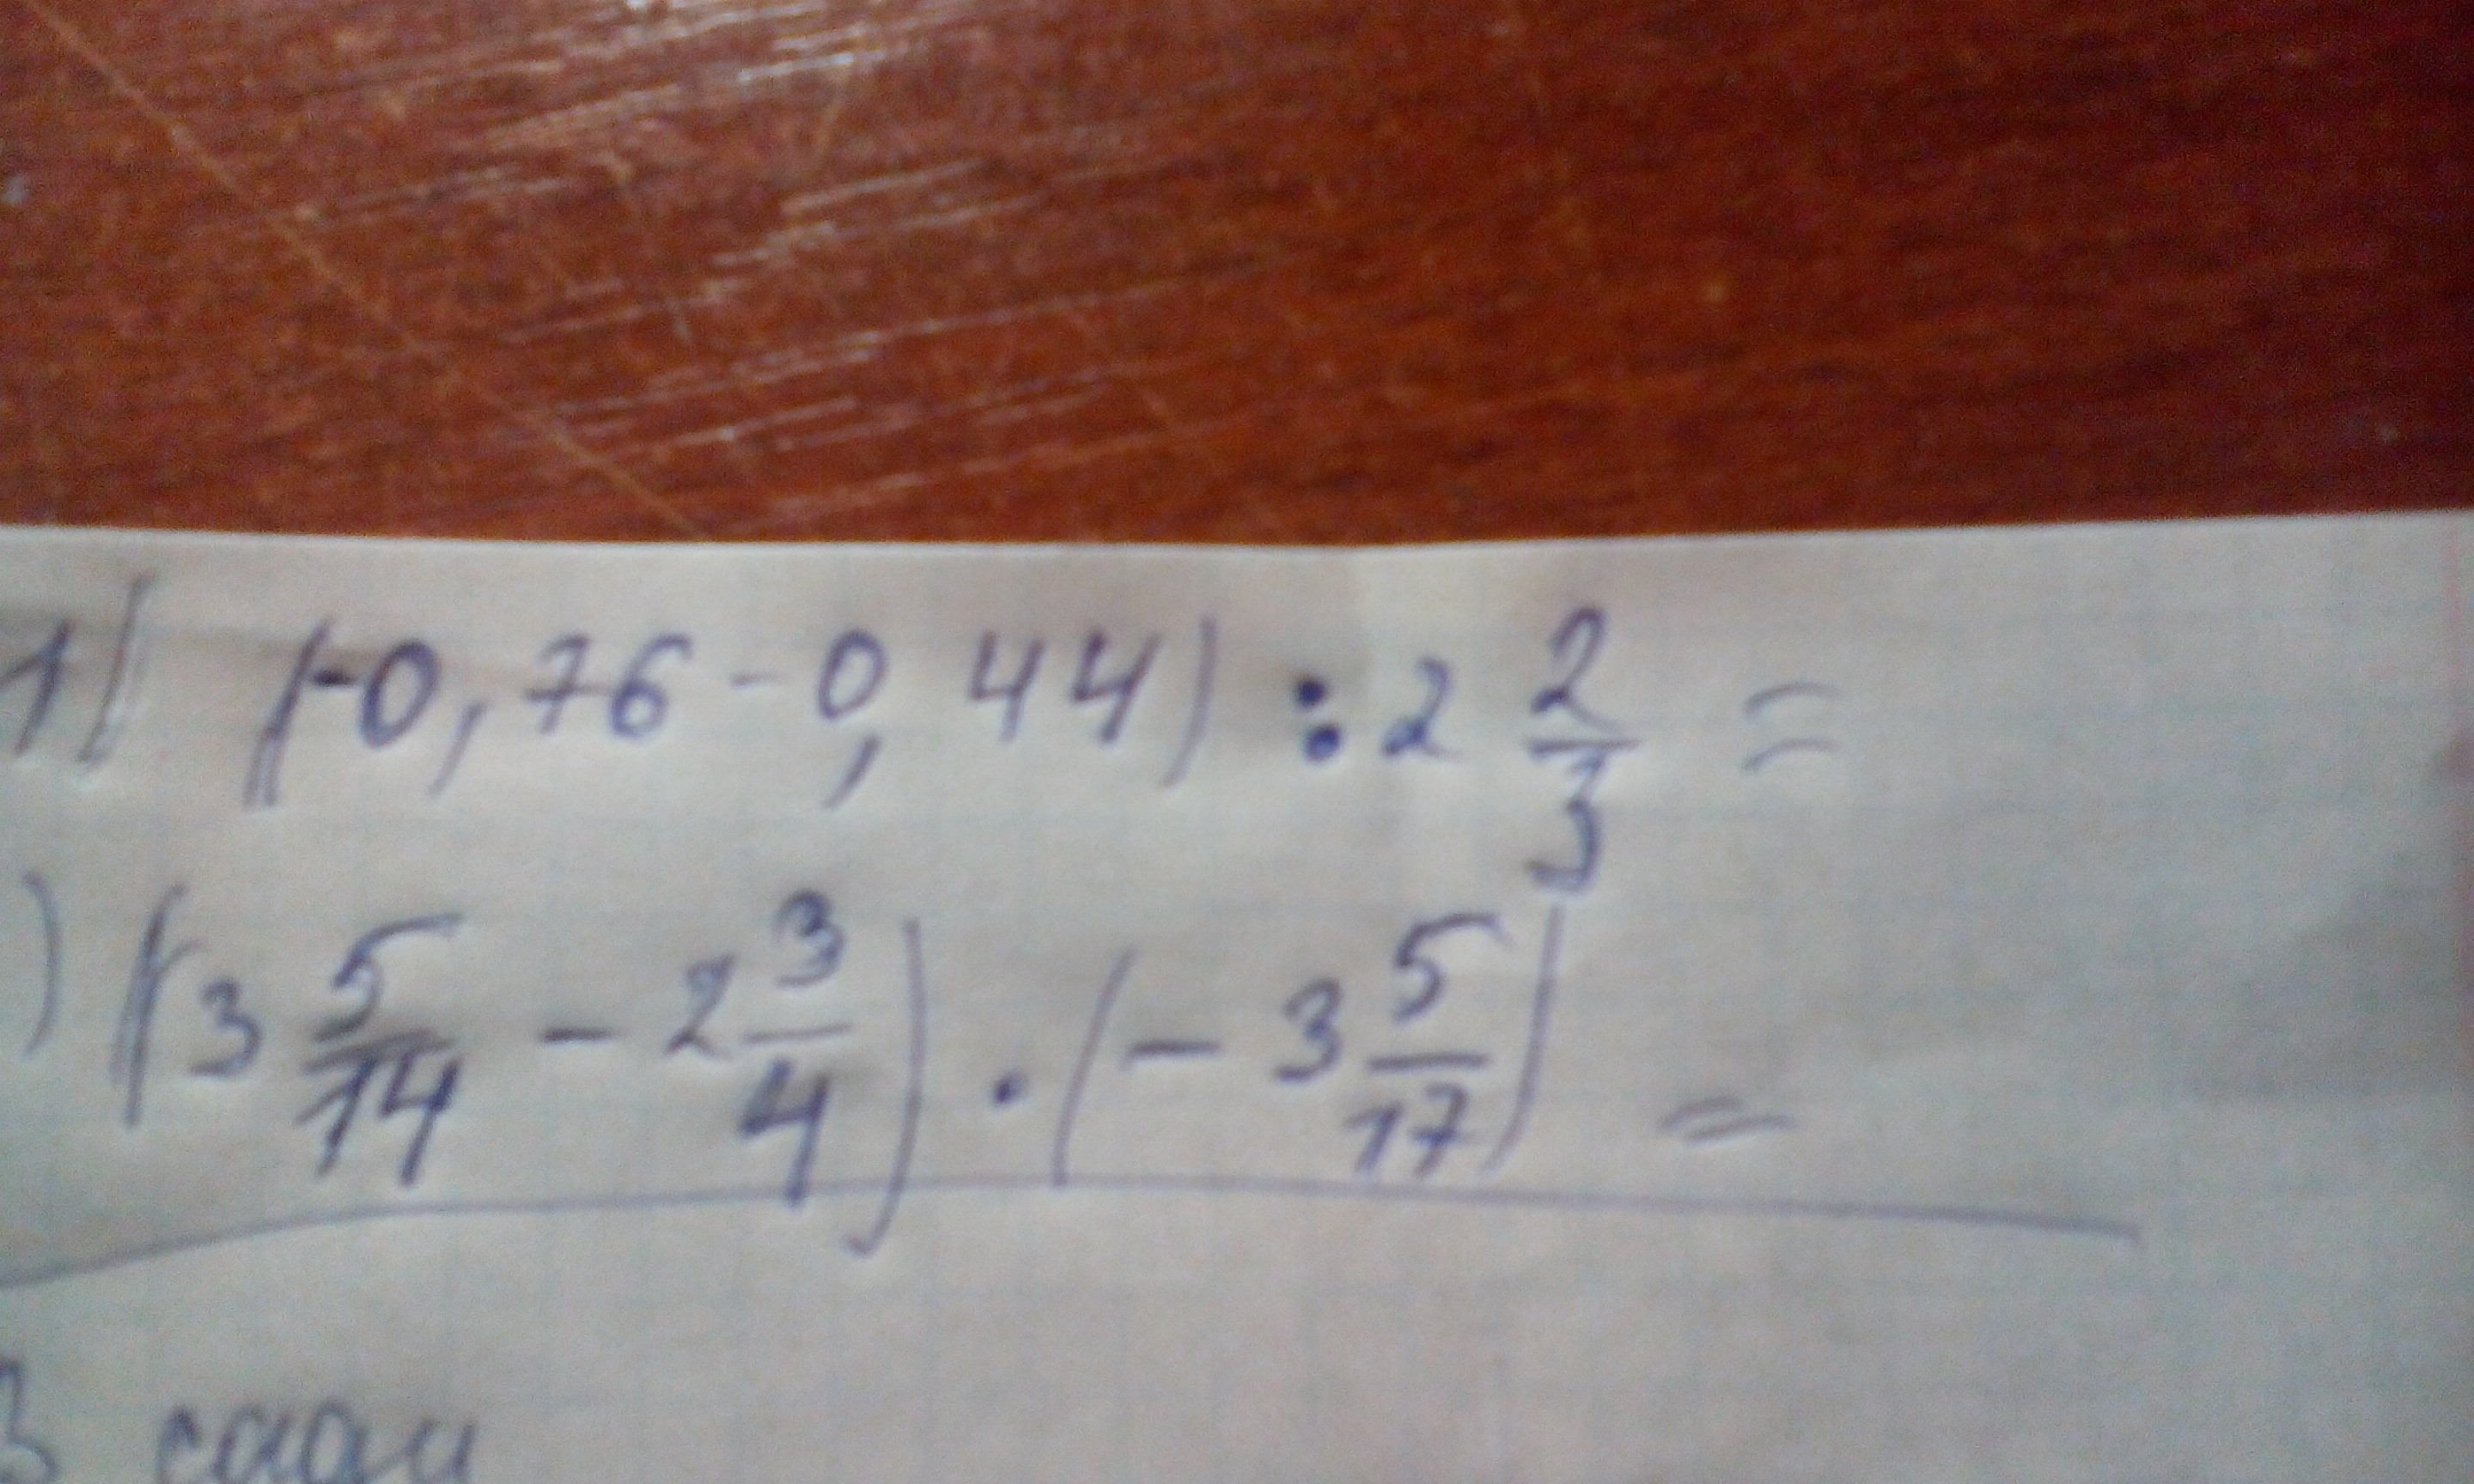 1) (-0,76-0,44) : 2 2/3 =
) (3 5/14 - 2 3/4) · (- 3 5/17) =
В саду